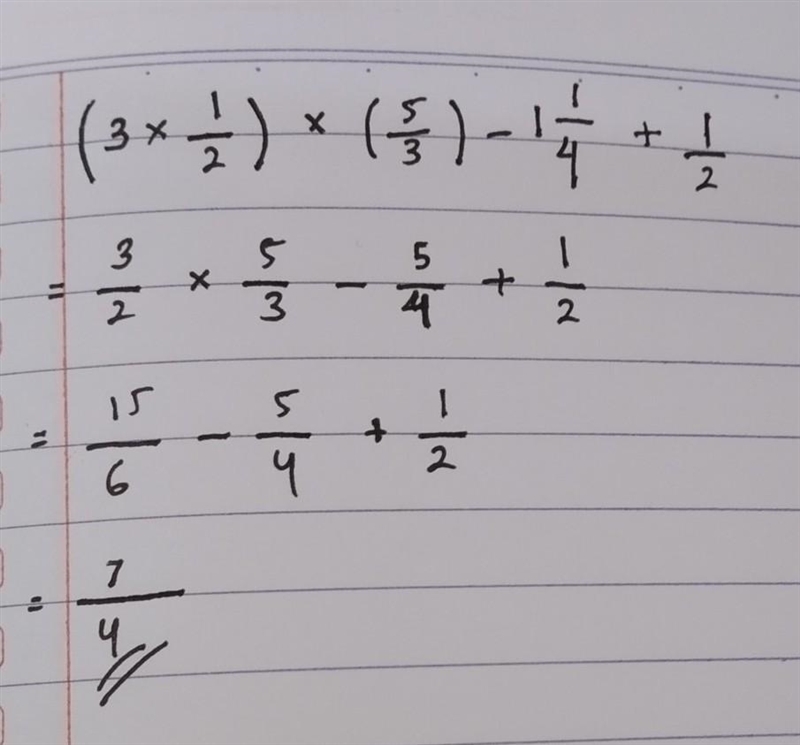 (3 × 1/2) × (5/3) - 1 1/4 + 1/2
= 3/2 × 5/3 - 5/4 + 1/2
= 15/6 - 5/4 + 1/2
= 7/4